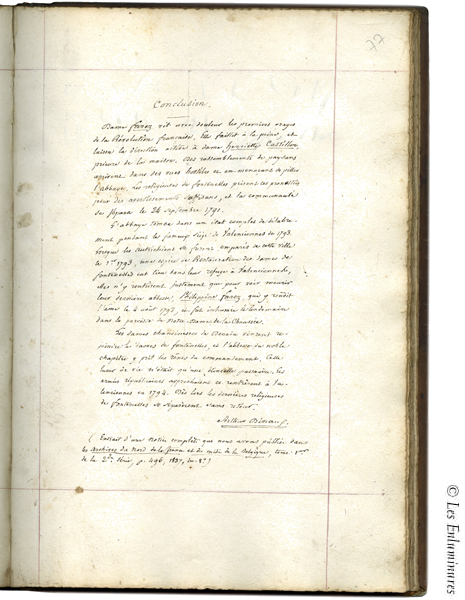 77
Conclusion.
Dame furez vit avec douleur les premiers orages
de la Révolution française. Elle faillit à la peine, et
laissa la direction active à dame henriette Castillon,
prieure de la maison. Des rassemblements de paysans
agirent dans des vues hostiles et en menaçant de piller
l'abbaye. Les religieuses de fontenelles prirent ces
pour des avertissements suffisans, et la communauté
se sépara le 26 septembre 1791.
L'abbaye tomba dans un état complet de délabre-
ment pendant les fameux siège de Valenciennes de 1793.
lorsque les Autrichiens se furent emparés de cette ville
le 1er 1793, une espèce de Restauration des dames de
fontenelles eut lieu dans leur refuge à Valenciennes,
elles n'y rentrèrent justement que pour voir mourir
leur dernière abbesse, Philippine furez, qui y rendit
l'âme le 4 août 1793, et fut inhumée le lendemain
dans la paroisse de Notre-Dame de la Chaussée.
Les dames chanoinesses de Denain vinrent re-
joindre les dames de fontenelles, et l'abbesse du noble
chapitre y prit les rênes du commandement. Cette
lueur de vie n'était qu'une étincelle passagère. Les
armées républicaines approchaient et rentrèrent à Va-
lenciennes en 1794. Dès lors les dernières religieuses
de fontenelles se séparèrent sans retour.
Arthur Dinaux.
( Extrait d'une Notice complète que nous avons publiée dans
les Archives du Nord de la france et du midi de la Belgique, tome 1er
de la 2de Série, p. 496, 1837, in-8°)
© Les Enluminures